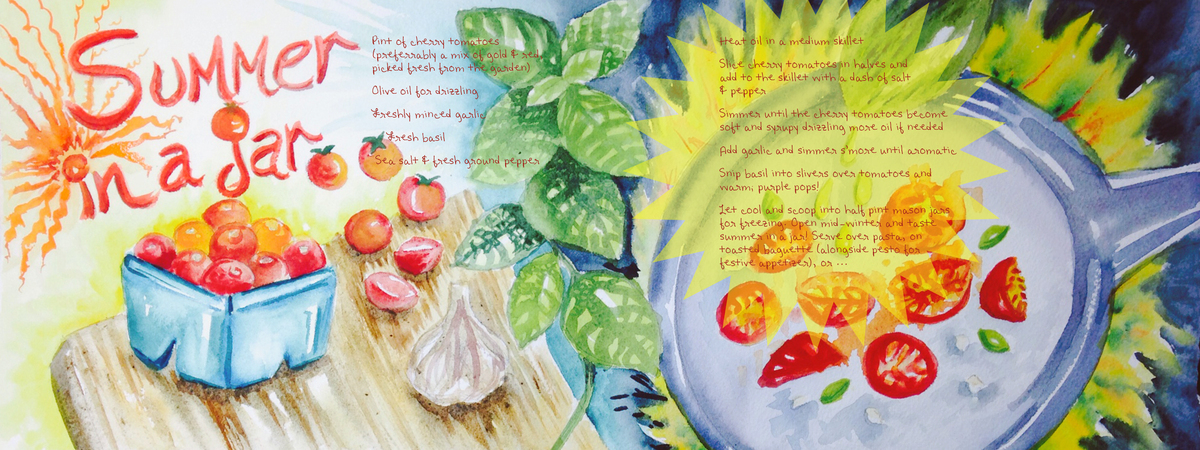 Summer
in a jar
Pint of cherry tomatoes
(preferrably a mix of gold & red,
picked fresh from the garden)
Olive oil for drizzling
Freshly minced garlic
Fresh basil
Sea salt & fresh ground pepper
Heat oil in a medium skillet
Slice cherry tomatoes in halves and
add to the skillet with a dash of salt
& pepper
Simmer until the cherry tomatoes become
soft and syrupy drizzling more oil if needed
Add garlic and simmer s'more until aromatic
Snip basil into slivers over tomatoes and
warm; purple pops!
Let cool and scoop into half pint mason jars
for freezing. Open mid-winter and taste
summer in a jar! Serve over pasta, on
toasted baguette (alongside pesto for
festive appetizer), or ...